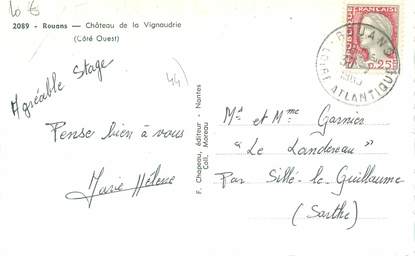 10 €
2089 - Rouans — Château de la Vignaudrie
(Côté Ouest)
Agréable Stage
Pense bien à vous
Marie Hélène
44)
F. Chapeau, éditeur - Nantes
Coll. Moreau
FRANÇAISE
0,25F
ROUANS
LOIRE ATLANTIQUE
Mr et Mme Garnier
"Le Landereau"
Par Sillé-le-Guillaume
(Sarthe)